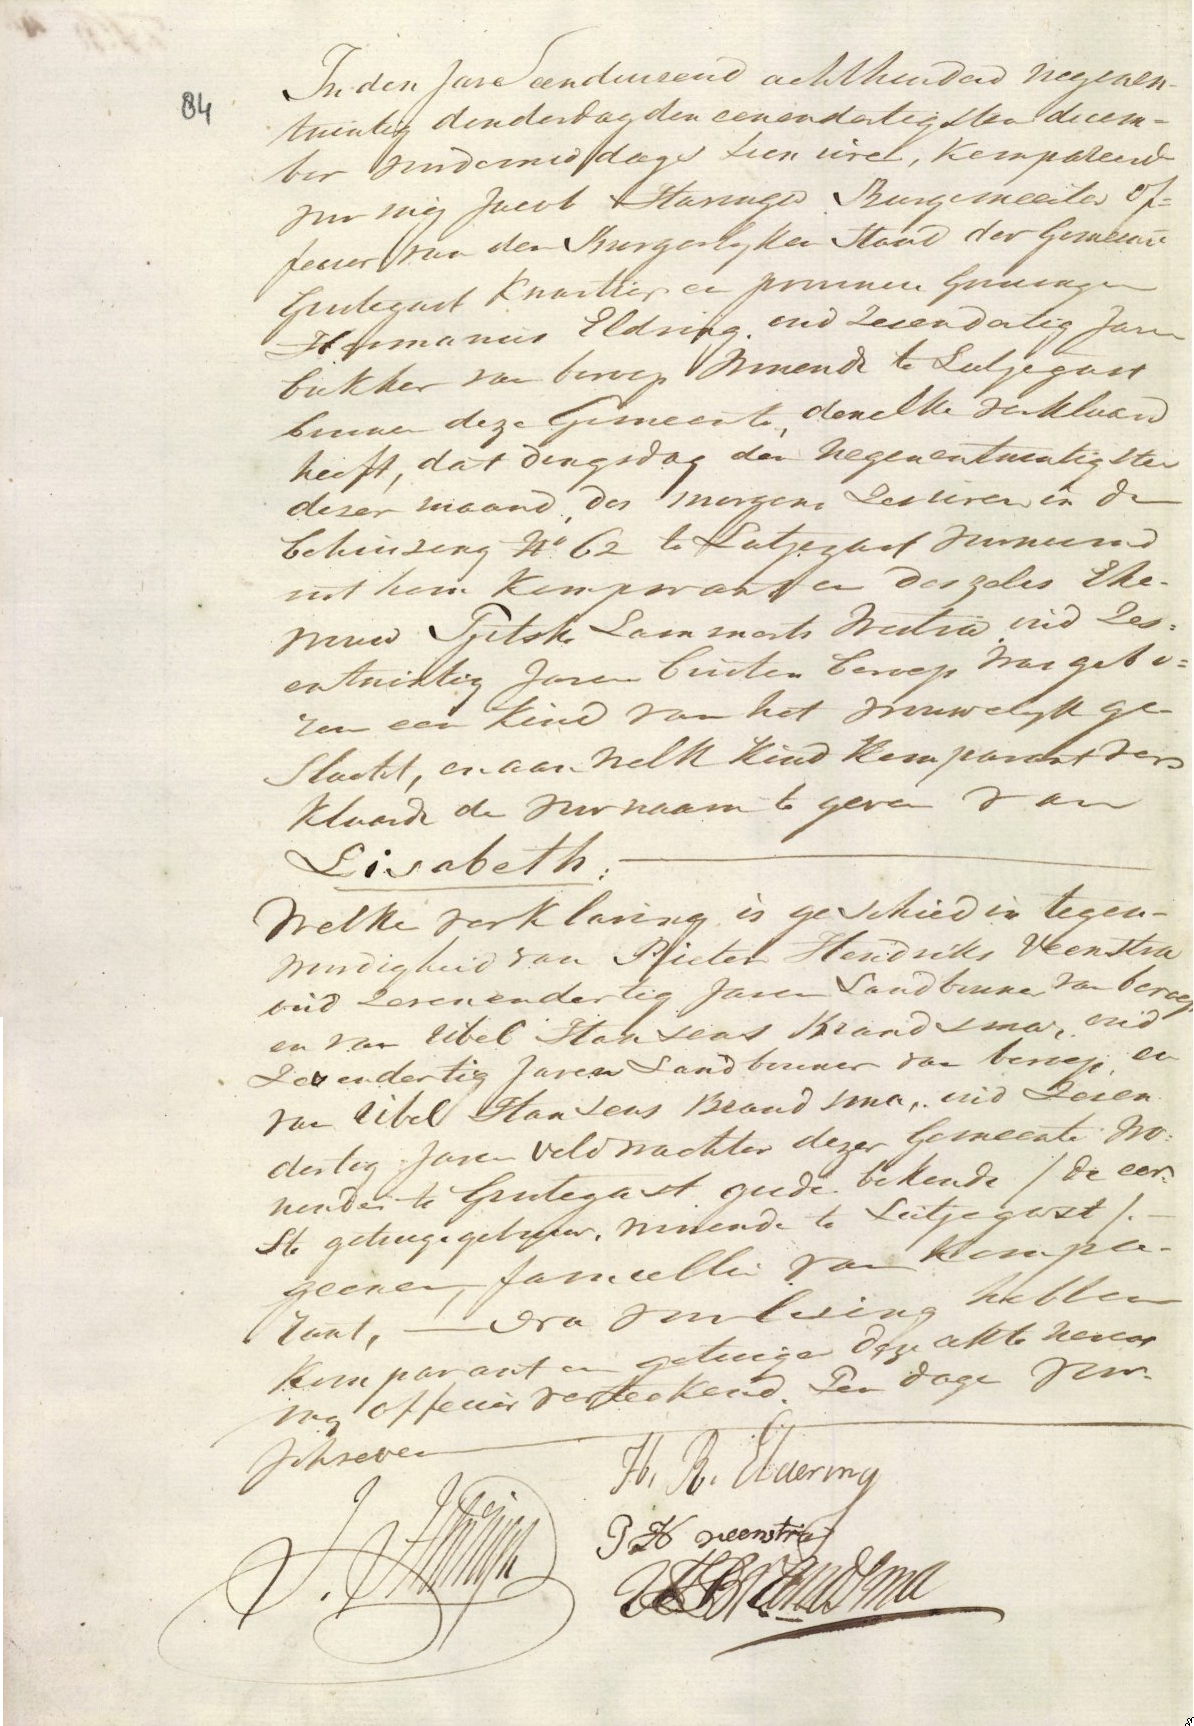 84
In den Jare eenduisend achthonderd negenen-
twintig donderdag den eenendertigsten decem-
ber voordemiddags tien uren, kompareerde
voor mij Jacob Haringa Burgemeester Of-
ficier van den Burgerlyken Stand der Gemeente
Grotegast Kwartier en provincie Groningen
Hermannus Eldring, oud zevendertig Jaren
bakker van beroep wonende te Lutjegast
binnen deze Gemeente, denwelke verklaard
heeft, dat dingsdag den negenentwintigsten
dezer maand, des morgens zes uren in de
behuizing No 62 te Lutjegast
uit hem Komparant en deszelvs Ehe-
vrouw Tjitske Lammerts Westra oud zes-
entwintig Jaren buiten beroep was gebo-
ren een kind van het vrouwelyk ge-
slacht, en aan welk Kind Komparant ver-
klaarde de voornaam te geven van
Lisabeth:
Welke verklaring is geschied in tegen-
woordigheid van Pieter Hendriks Veenstra
oud zevenendertig Jaren Landbouwer van beroep
en van Uibel Hansens Brandsma, oud
zevendertig Jaren Landbouwer van beroep en
van Uibel Hansens Brandsma, oud zeven
dertig Jaren veldwachter dezer Gemeente wo-
nende te Grotegast goede bekende / de eer-
ste getuige gebuur, wonende te Lutjegast /. —
geenen familie van Kompa-
rant, — Dra voorlesing hebben
Komparant en getuigen deze akte nevens
mij officier verteekend. Ten dage voor-
schreven
H. R. Eldering
J. Haringa
P H veenstra
U H Brandsma